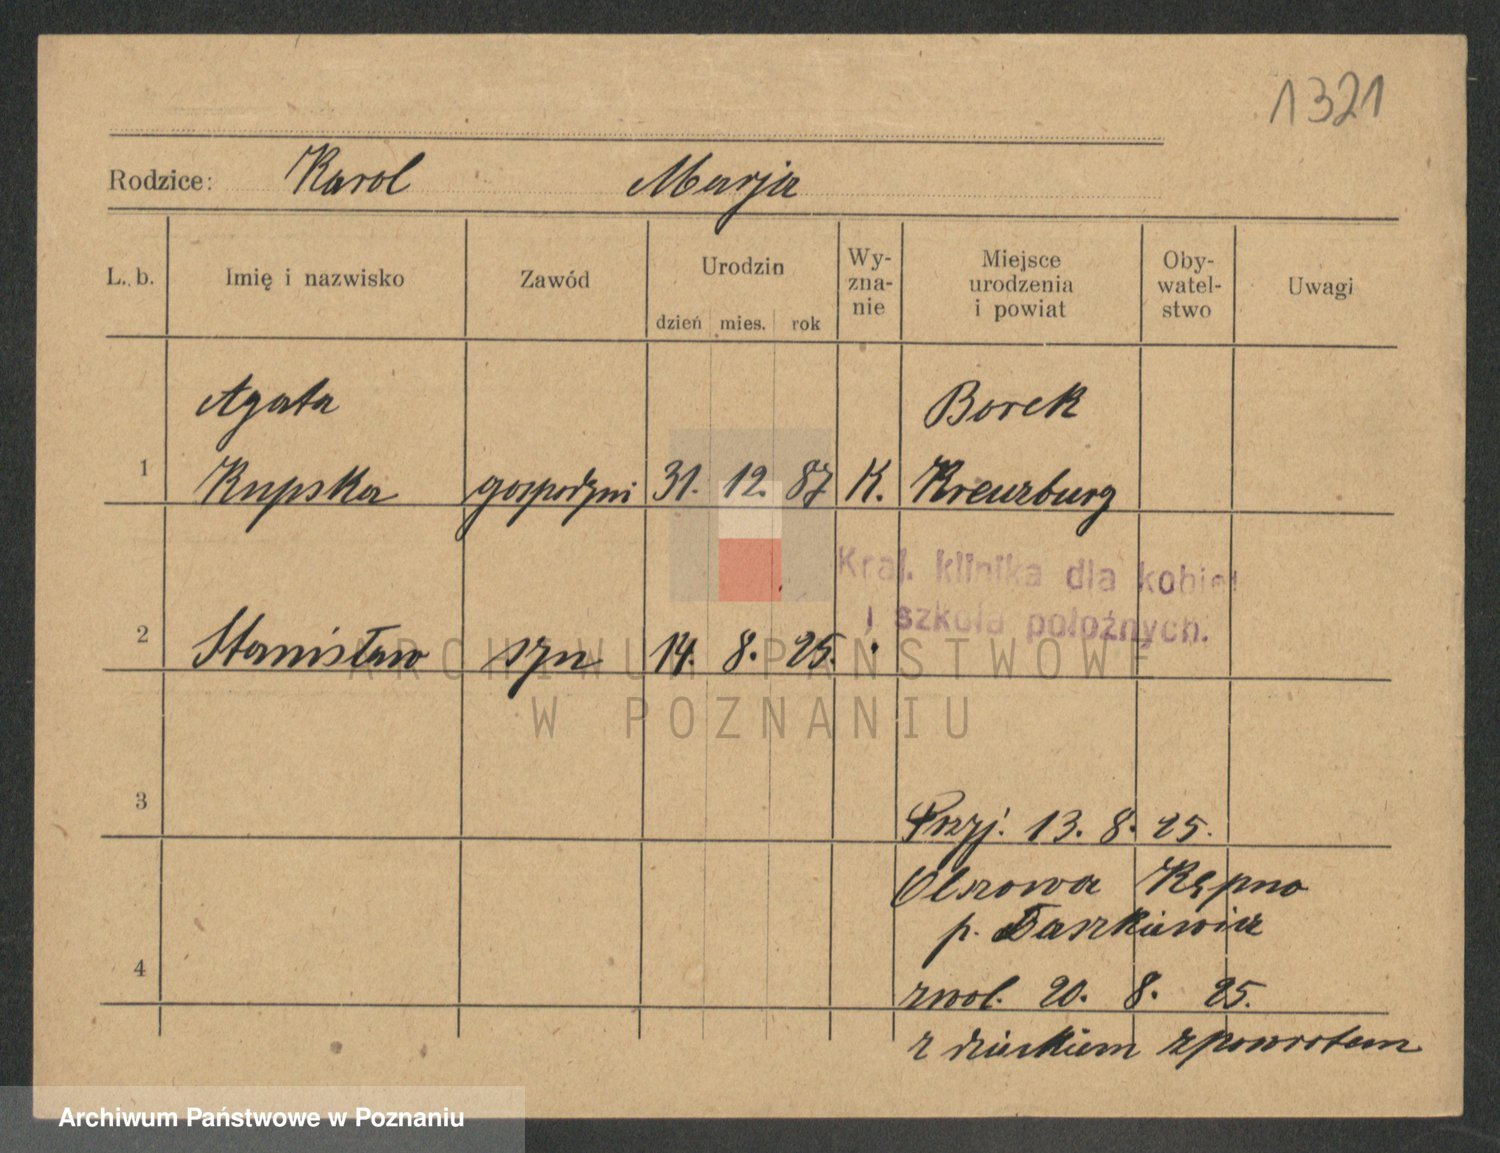 1321
Rodzice: Karol Marja
L. b. Imię i nazwisko Zawód Urodzin dzień mies. rok Wy-zna-nie Miejsce urodzenia i powiat Oby-watel-stwo Uwagi
Agata Borek
1 Kupska gospodyni 31. 12. 87 K. Kreuzburg
Kraj. klinika dla kobiet
i szkoła położnych.
2 Stanisław syn 14. 8. 25.
ARCHIWUM PAŃSTWOWE
W POZNANIU
3 Przyj. 13. 8. 25.
Olszowa Kępno
p. Baszkiewicz
4 zwol. 20. 8. 25.
z dzieckiem zpowrotem
Archiwum Państwowe w Poznaniu